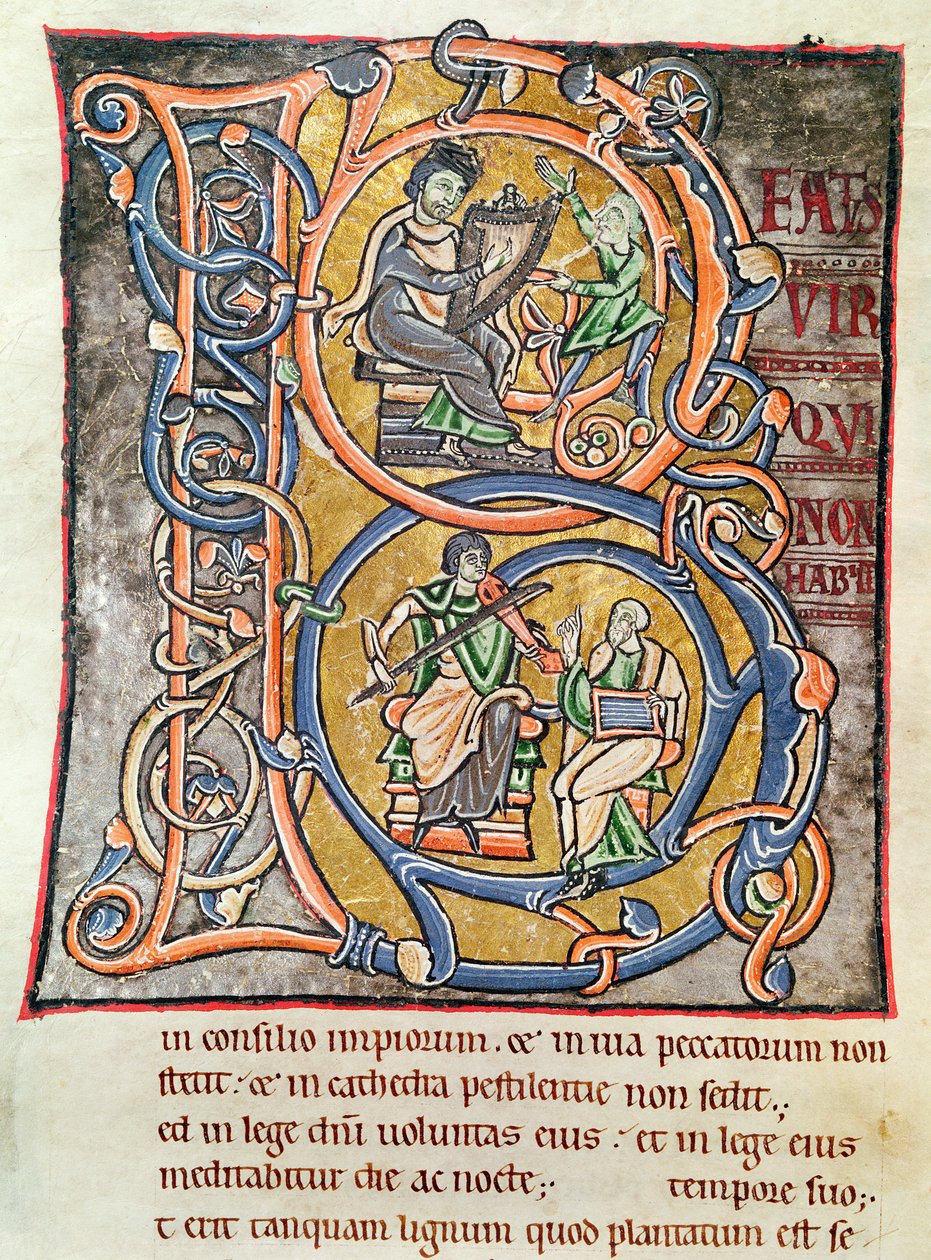 BEATVS
VIR
QVI
NON
HABIIT
in consilio impiorum. & in uia peccatorum non
stetit: & in cathedra pestilentie non sedit.;
ed in lege dn̄i uoluntas eius. et in lege eius
meditabitur die ac nocte;. tempore suo;.
t erit tanquam lignum quod plantatum est se